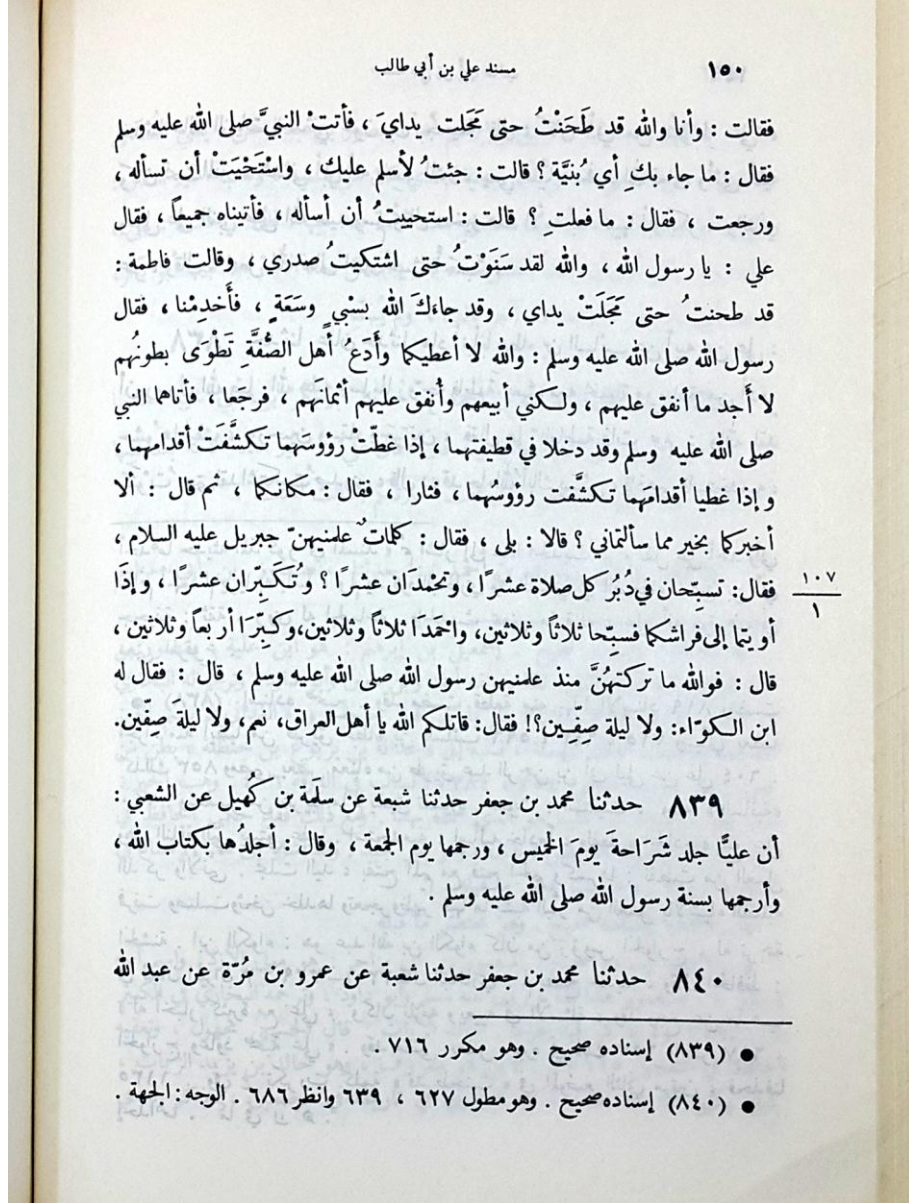 ١٥٠
مسند علي بن أبي طالب
فقالت : وأنا والله قد طَحَنْتُ حتى مَجَلت يدايَ ، فأتتْ النبيَّ صلى الله عليه وسلم
فقال : ما جاء بكِ أي بُنيَّة ؟ قالت : جئتُ لأسلم عليك ، واسْتَحْيَتْ أن تسأله ،
ورجعت ، فقال : ما فعلتِ ؟ قالت : استحييتُ أن أسأله ، فأتيناه جميعاً ، فقال
علي : يا رسول الله ، والله لقد سَنَوْتُ حتى اشتكيتُ صدري ، وقالت فاطمة :
قد طحنتُ حتى مَجَلَتْ يداي ، وقد جاءكَ الله بسْبيٍ وسَعَةٍ ، فأَخدِمْنا ، فقال
رسول الله صلى الله عليه وسلم : والله لا أعطيكما وأَدَعُ أهل الصُّفَّةِ تَطْوَى بطونُهم
لا أَجد ما أنفق عليهم ، ولكني أبيعهم وأُنفق عليهم أثمانَهم ، فرجَعا ، فأتاهما النبي
صلى الله عليه وسلم وقد دخلا في قطيفتهما ، إذا غطّتْ رؤوسَهما تكشَّفَتْ أقدامهما ،
وإذا غطيا أقدامَهما تكشَّفت رؤوسُهما ، فثارا ، فقال : مكانكما ، ثم قال : ألا
أخبركما بخير مما سألتماني ؟ قالا : بلى ، فقال : كلماتٌ علمنيهنّ جبريل عليه السلام ،
فقال : تسبّحان في دُبُر كل صلاة عشرًا ، وتحْمدَان عشرًا ؟ وتُكَبِّران عشرًا ، وإذَا
١٠٧
١
أويتما إلى فراشكما فسبِّحا ثلاثاً وثلاثين، واحْمَدَا ثلاثاً وثلاثين، وكبِّرَا أربعاً وثلاثين ،
قال : فوالله ما تركتهُنَّ منذ علمنيهن رسول الله صلى الله عليه وسلم ، قال : فقال له
ابن الكوّاء: ولا ليلة صِفِّين؟! فقال: قاتلكم الله يا أهل العراق، نعم، ولا ليلةَ صِفِّين.
٨٣٩ حدثنا محمد بن جعفر حدثنا شعبة عن سلَمة بن كُهيل عن الشعبي :
أن عليًّا جلد شَرَاحةَ يومَ الخميس ، ورجمها يوم الجمعة ، وقال : أجلدُها بكتاب الله ،
وأرجمها بسنة رسول الله صلى الله عليه وسلم .
٨٤٠ حدثنا محمد بن جعفر حدثنا شعبة عن عمرو بن مُرّة عن عبد الله
● (٨٣٩) إسناده صحيح . وهو مكرر ٧١٦ .
● (٨٤٠) إسناده صحيح . وهو مطول ٦٢٧ ، ٦٣٩ وانظر ٦٨٦ . الوجه : الجهة .